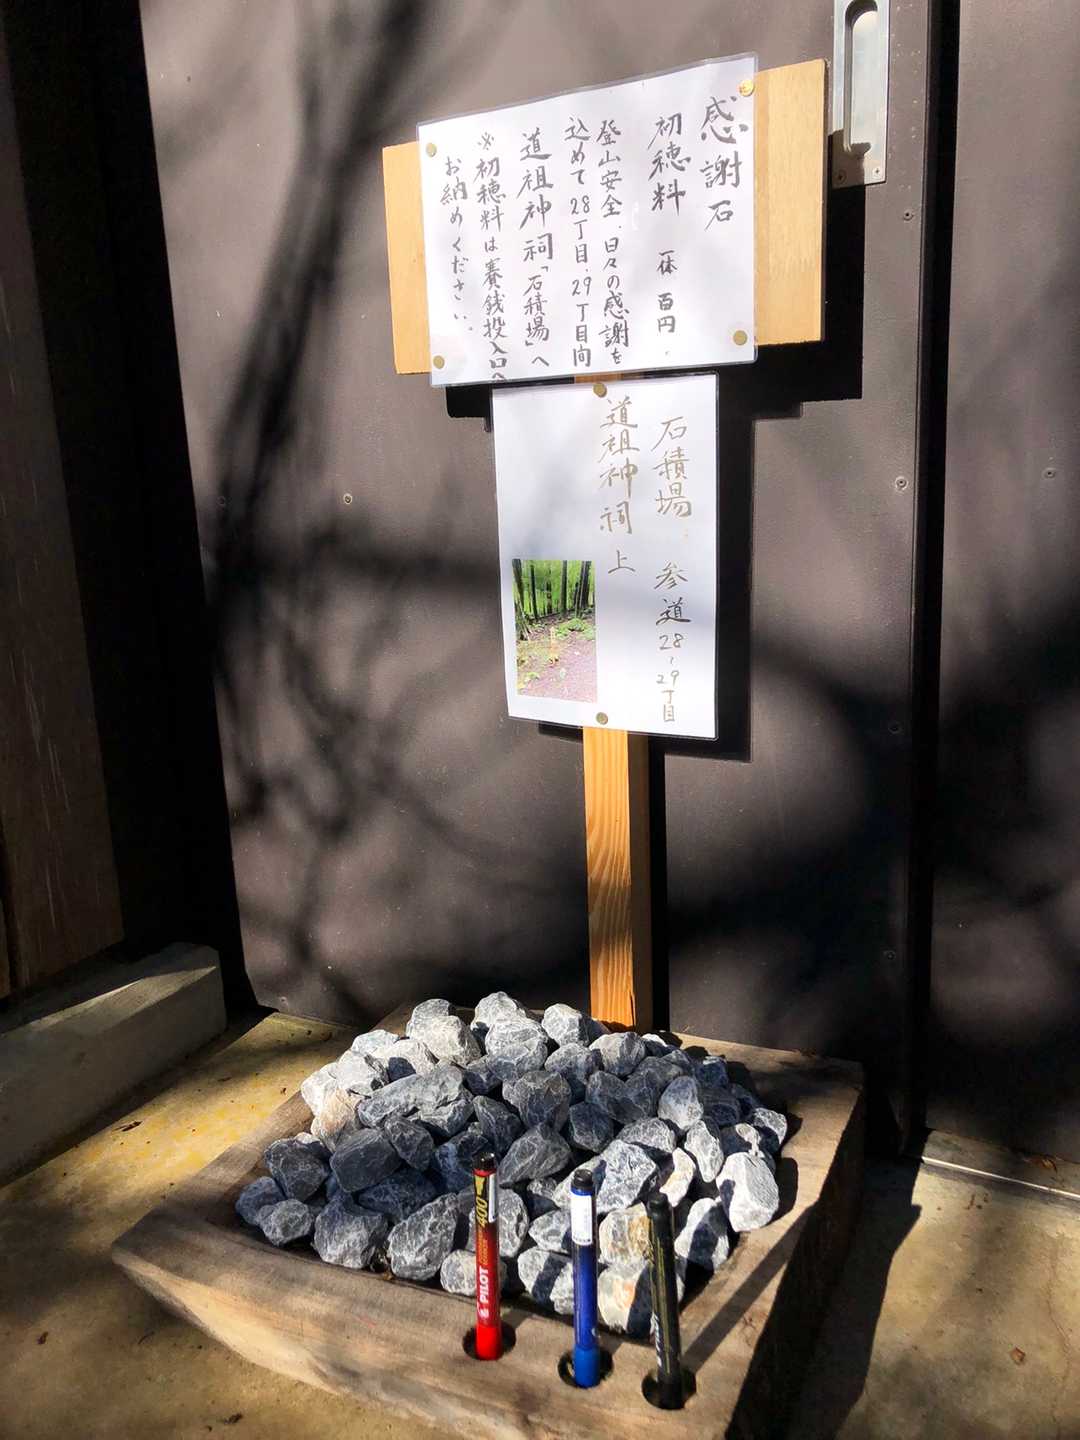 感謝石
初穂料 一体 百円
登山安全、日々の感謝を
込めて28丁目、29丁目向
道祖神祠「石積場」へ
※初穂料は賽銭投入口へ
お納めください。
石積場 参道28~29丁目
道祖神祠 上
400
PILOT